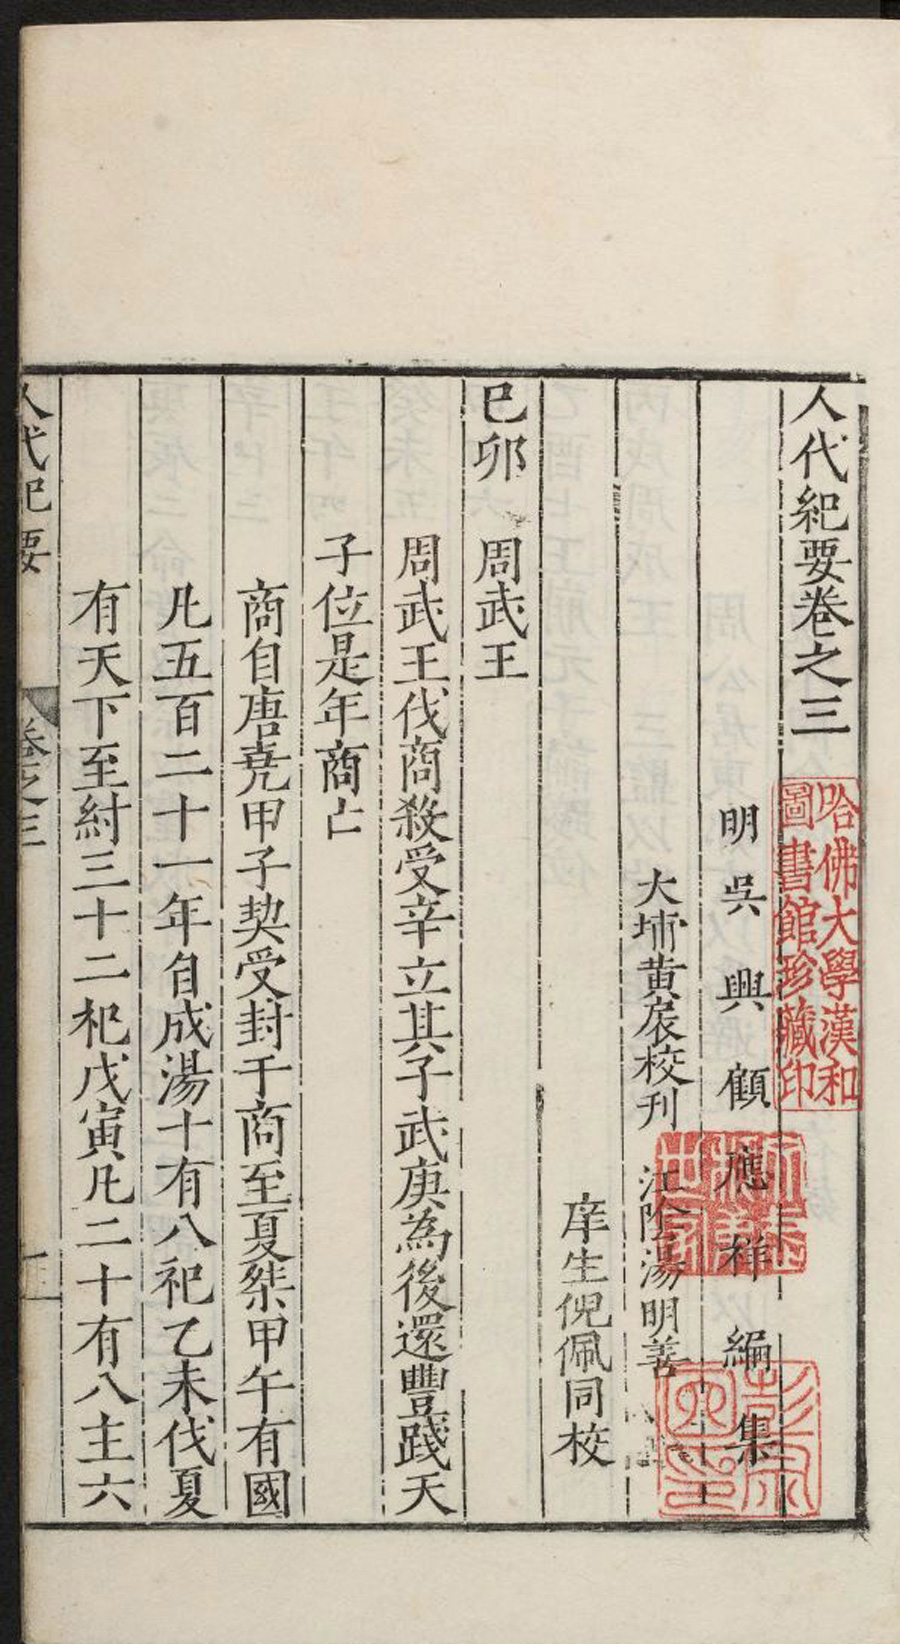 人代紀要卷之三
明吳興顧應祥編集
大埔黃扆校刋 江陰湯明善
庠生倪佩同校
巳卯 周武王
周武王伐商殺受辛立其子武庚為後還豐踐天
子位是年商亡
商自唐堯甲子契受封于商至夏桀甲午有國
凡五百二十一年自成湯十有八祀乙未伐夏
有天下至紂三十二祀戊寅凡二十有八主六
人代紀要 卷之三
哈佛大學漢和
圖書館珍藏印